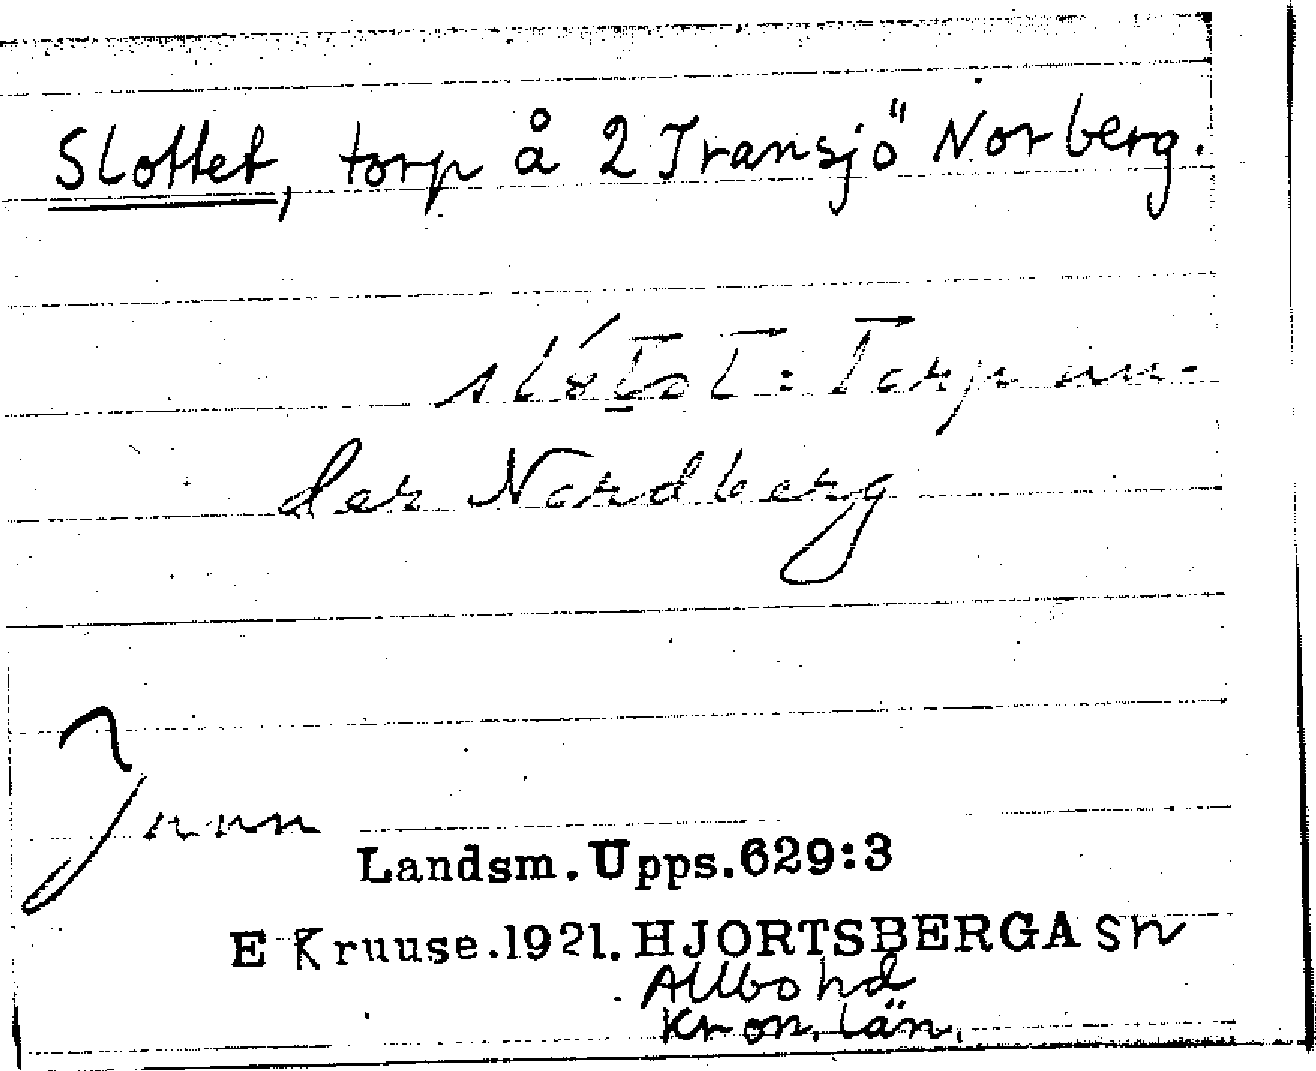 Slottet, torp å 2 Transjö Norberg.
: Torp un-
der Nordberg
Landsm. Upps. 629:3
E Kruuse. 1921. HJORTSBERGA sn
Allbo hd
Kron. län.